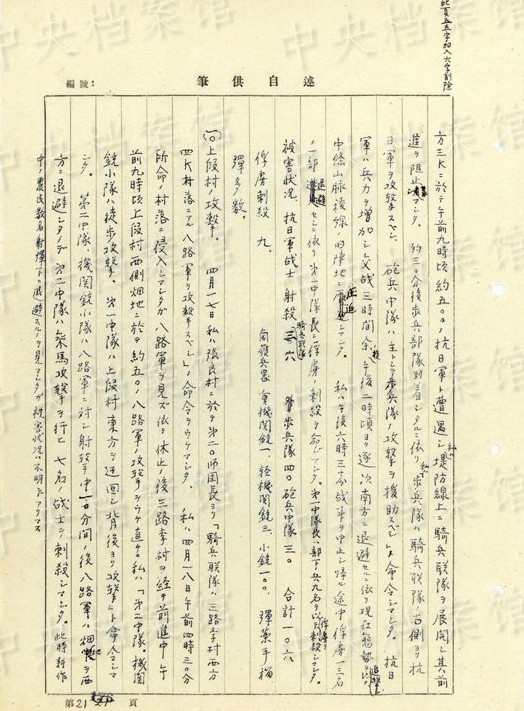 此頁五五字加入六字削除
中央档案馆
編號:
筆供自述
方三Kニ於テ午前九時頃約五〇〇ノ抗日軍ト遭遇シ私ハ堤防線上ニ騎兵联隊ヲ展開シ其前
進ヲ阻止シマシタ。約三〇分後歩兵部隊到着シタルニ依リ私ハ歩兵隊ハ騎兵联隊ノ右側ヨリ抗
日軍ヲ攻撃スベシ、砲兵中隊ハ主トシテ歩兵隊ノ攻撃ヲ援助スベシト命令シマシタ。抗日
軍ハ兵力ヲ増加シ交战三時間余、午後二時頃ヨリ逐次南方ニ退避セシニ依リ現在態勢
中條山脈稜線ノ旧陣地ニ圧迫シマシタ。私ハ午後六時三十分战斗ヲ中止シ帰ル途中俘虜一三名
ノ一部セシニ依リ第一中隊長ニ俘虜ノ刺殺ヲ命ジマシタ。第一中隊長ハ部下ノ兵九名ヲシテ刺殺シマシタ。
被害状況、抗日軍战士射殺騎兵联隊三六歩兵隊四〇砲兵中隊三〇合計一〇六
俘虜刺殺九。
重機関銃一、軽機関銃三、小銃一〇〇、弾薬手榴
弾多数。
(一〇)上段村ノ攻撃。四月一七日私ハ張良村ニ於テ第二〇师团長ヨリ「騎兵联隊ハ三路李村西方
四K村落ニアル八路軍ヲ攻撃スベシ」ノ命令ヲウケマシタ。私ハ四月一八日午前四時三〇分
所命ノ村落ニ侵入シマシタガ八路軍ヲ見ズ依テ休止ノ後三路李村ヲ経テ前進中午
前九時頃上段村西側畑地ニ於テ約五〇ノ八路軍ノ攻撃ヲウケ直チニ私ハ「第二中隊、機関
銃小隊ハ徒歩攻撃。第一中隊ハ上段村東方ヲ迂回シ背後ヨリ攻撃」ト命令シマ
シタ。第二中隊、機関銃小隊ハ八路軍ニ対シ射撃中一〇分間ノ後八路軍ハ西
方ニ退避シタノデ第二中隊ハ乗馬攻撃ヲ行ヒ七名ノ战士ヲ刺殺シマシタ。此時耕作
中ノ農民数名射撃下ニ退避スルノヲ見マシタガ被害状況ハ不明デアリマス
第21頁